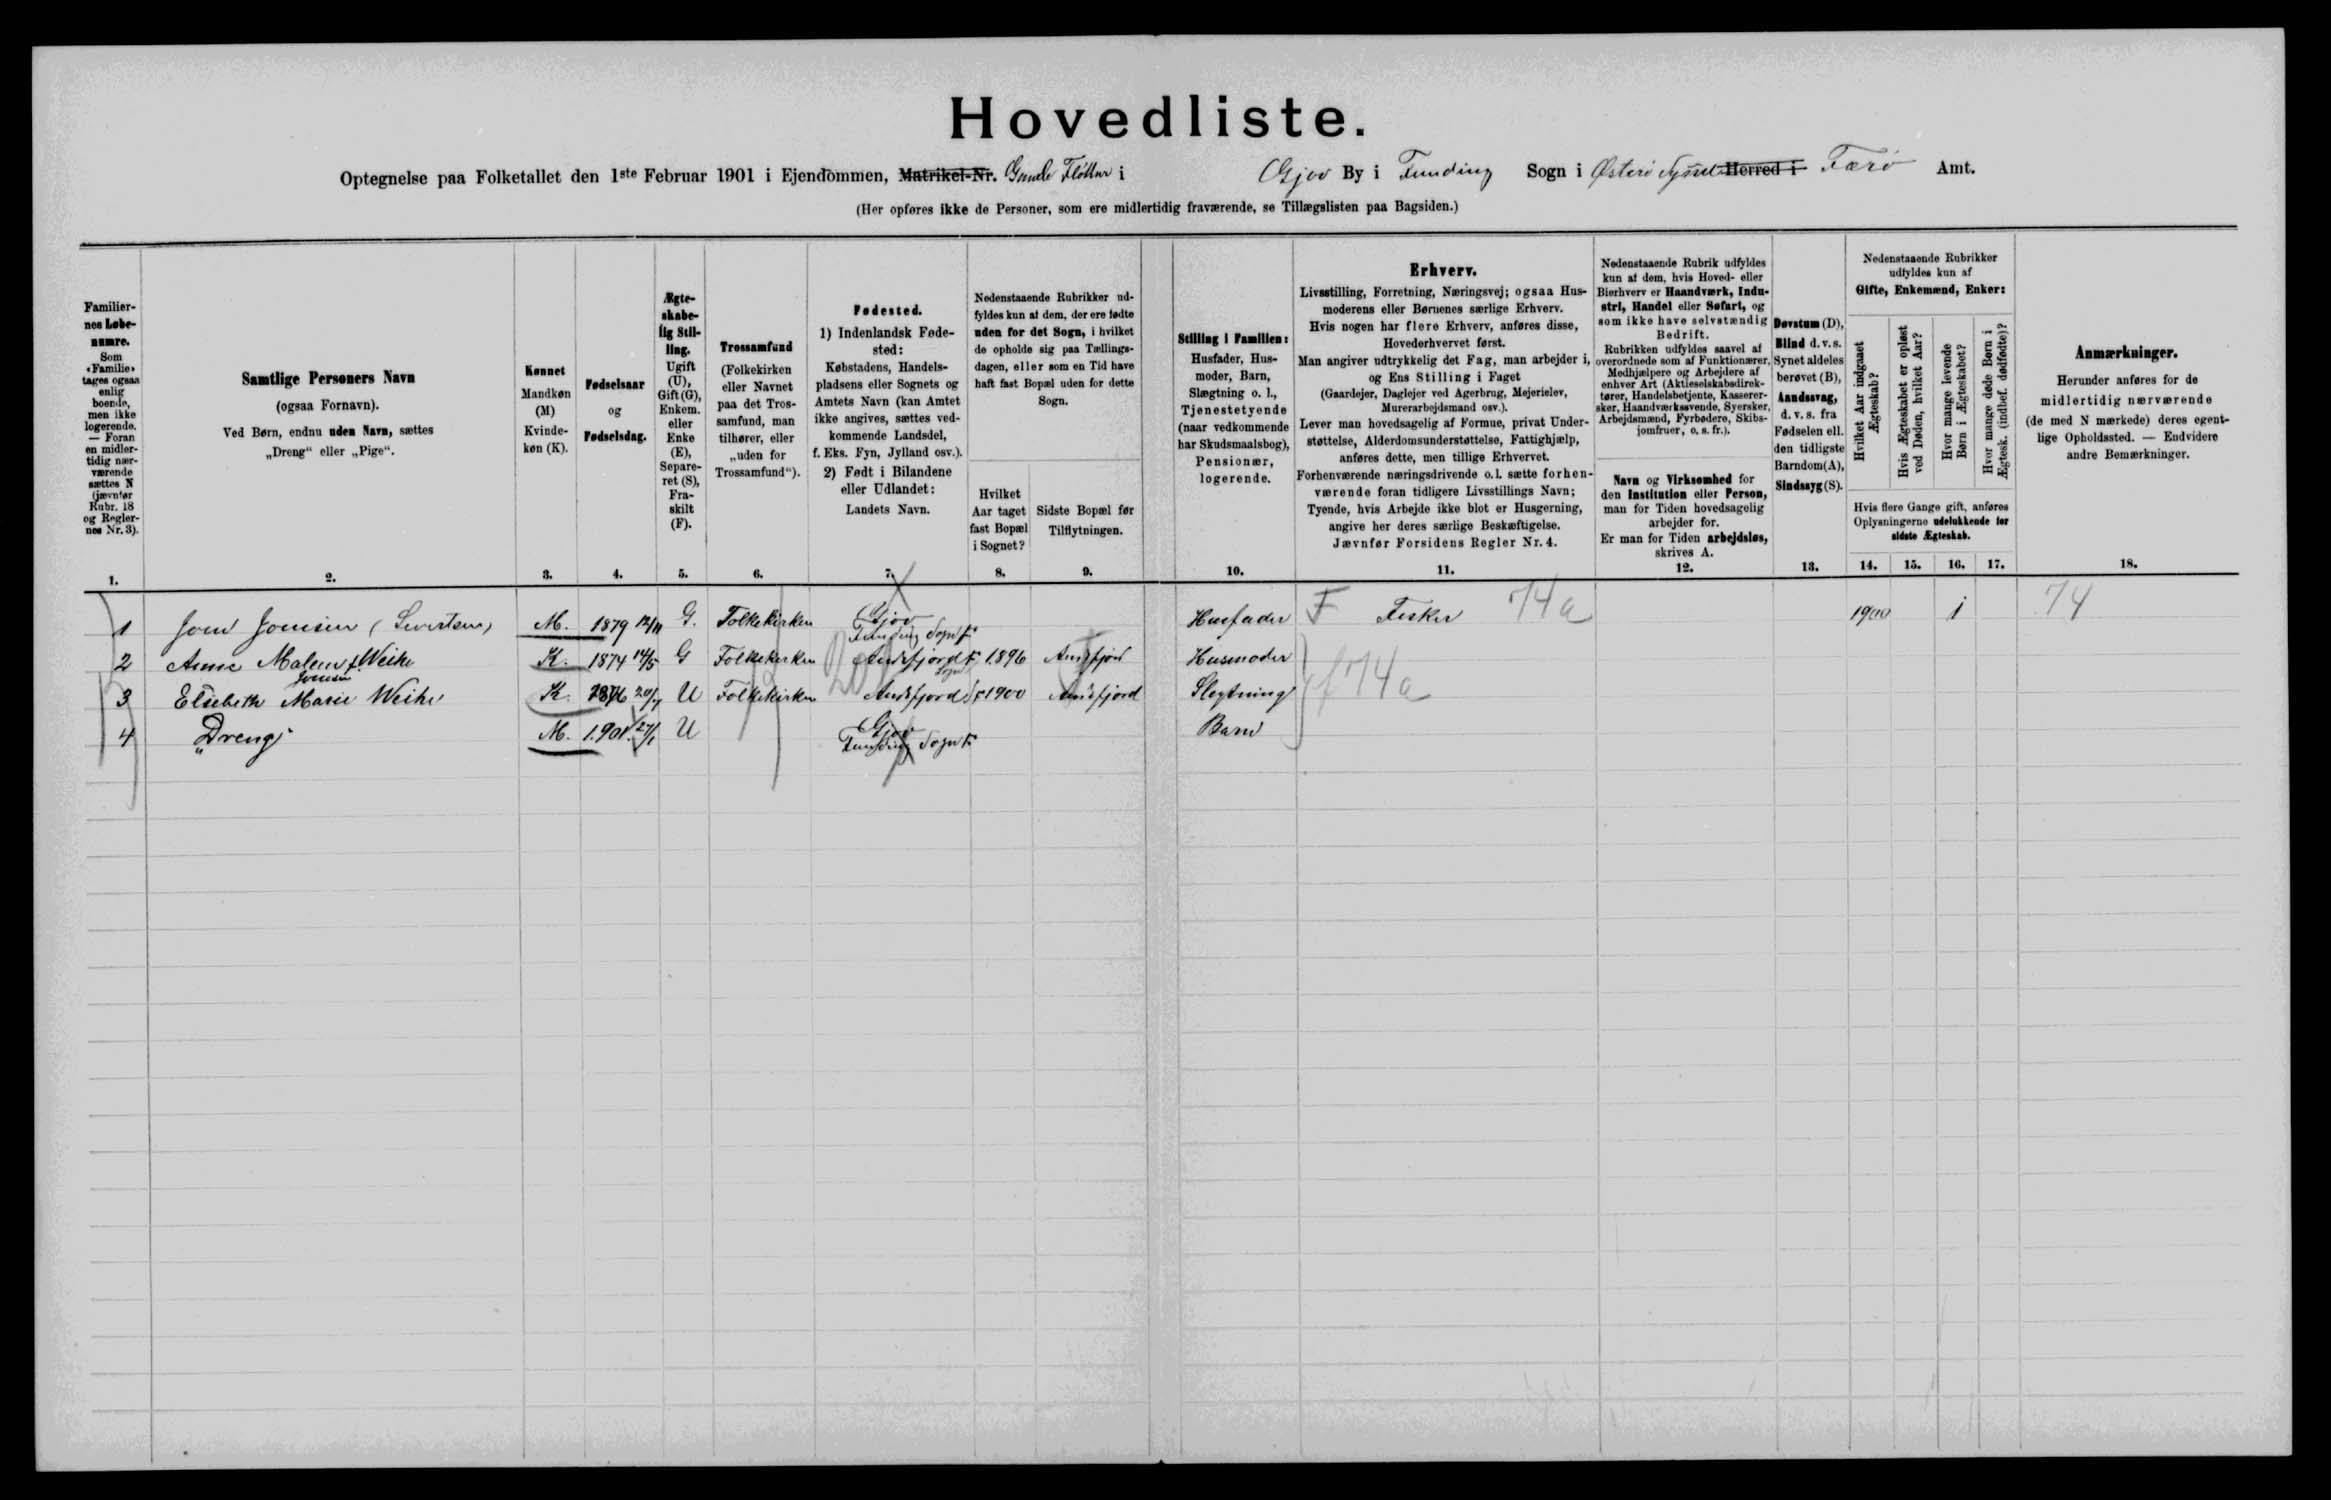 Hovedliste.
Optegnelse paa Folketallet den 1ste Februar 1901 i Ejendommen, Matrikel-Nr. i Gjov By i Funding Sogn i Østerø Syssel Herred i Færø Amt.
(Her opføres ikke de Personer, som ere midlertidig fraværende, se Tillægslisten paa Bagsiden.)
Familier-
nes Løbe-
numre.
Som
«Familie»
tages ogsaa
enlig
boende,
men ikke
logerende.
— Foran
en midler-
tidig nær-
værende
sættes N
(jævnfør
Rubr. 18
og Regler-
nes Nr. 3).
1.
Samtlige Personers Navn
(ogsaa Fornavn).
Ved Børn, endnu uden Navn, sættes
„Dreng“ eller „Pige“.
2.
Kønnet
Mandkøn
(M)
Kvinde-
køn (K).
3.
Fødselsaar
og
Fødselsdag.
4.
Ægte-
skabe-
lig Stil-
ling.
Ugift
(U),
Gift (G),
Enkem.
eller
Enke
(E),
Separe-
ret (S),
Fra-
skilt
(F).
5.
Trossamfund
(Folkekirken
eller Navnet
paa det Tros-
samfund, man
tilhører, eller
„uden for
Trossamfund“).
6.
Fødested.
1) Indenlandsk Føde-
sted:
Købstadens, Handels-
pladsens eller Sognets og
Amtets Navn (kan Amtet
ikke angives, sættes ved-
kommende Landsdel,
f. Eks. Fyn, Jylland osv.).
2) Født i Bilandene
eller Udlandet:
Landets Navn.
7.
Nedenstaaende Rubrikker ud-
fyldes kun af dem, der ere fødte
uden for det Sogn, i hvilket
de opholde sig paa Tællings-
dagen, eller som en Tid have
haft fast Bopæl uden for dette
Sogn.
Hvilket
Aar taget
fast Bopæl
i Sognet?
8.
Sidste Bopæl før
Tilflytningen.
9.
Stilling i Familien:
Husfader, Hus-
moder, Barn,
Slægtning o. l.,
Tjenestetyende
(naar vedkommende
har Skudsmaalsbog),
Pensionær,
logerende.
10.
Erhverv.
Livsstilling, Forretning, Næringsvej; ogsaa Hus-
moderens eller Børnenes særlige Erhverv.
Hvis nogen har flere Erhverv, anføres disse,
Hovederhvervet først.
Man angiver udtrykkelig det Fag, man arbejder i,
og Ens Stilling i Faget
(Gaardejer, Daglejer ved Agerbrug, Mejerielev,
Murerarbejdsmand osv.).
Lever man hovedsagelig af Formue, privat Under-
støttelse, Alderdomsunderstøttelse, Fattighjælp,
anføres dette, men tillige Erhvervet.
Forhenværende næringsdrivende o. l. sætte forhen-
værende foran tidligere Livsstillings Navn;
Tyende, hvis Arbejde ikke blot er Husgerning,
angive her deres særlige Beskæftigelse.
Jævnfør Forsidens Regler Nr. 4.
11.
Nedenstaaende Rubrik udfyldes
kun af dem, hvis Hoved- eller
Bierhverv er Haandværk, Indu-
stri, Handel eller Søfart, og
som ikke have selvstændig
Bedrift.
Rubrikken udfyldes saavel af
overordnede som af Funktionærer,
Medhjælpere og Arbejdere af
enhver Art (Aktieselskabsdirek-
tører, Handelsbetjente, Kasserer-
sker, Haandværkssvende, Syersker,
Arbejdsmænd, Fyrbødere, Skibs-
jomfruer, o. s. fr.).
Navn og Virksomhed for
den Institution eller Person,
man for Tiden hovedsagelig
arbejder for.
Er man for Tiden arbejdsløs,
skrives A.
12.
Døvstum (D),
Blind d. v. s.
Synet aldeles
berøvet (B),
Aandssvag,
d. v. s. fra
Fødselen ell.
den tidligste
Barndom (A),
Sindssyg (S).
13.
Nedenstaaende Rubrikker
udfyldes kun af
Gifte, Enkemænd, Enker:
Hvilket Aar indgaaet
Ægteskab?
Hvis Ægteskabet er opløst
ved Døden, hvilket Aar?
Hvor mange levende
Børn i Ægteskabet?
Hvor mange døde Børn i
Ægtesk. (indbef. dødfødte)?
Hvis flere Gange gift, anføres
Oplysningerne udelukkende for
sidste Ægteskab.
14. 15. 16. 17.
Anmærkninger.
Herunder anføres for de
midlertidig nærværende
(de med N mærkede) deres egent-
lige Opholdssted. — Endvidere
andre Bemærkninger.
18.
1 Joen Joensen M. 1879 12/11 G. Folkekirken Gjov Funding Sogn F. Husfader F Fisker 74 a 1900 1 74
2 Anne Malene f. Weihe K. 1874 14/5 G Folkekirken Andefjord F. 1896 Andefjord Husmoder
Joensen
3 Elsebeth Marie Weihe K. 1876 20/7 U Folkekirken Andefjord 1900 Andefjord Slegtning f 74 a
4 „Dreng“ M. 1901 27/1 U Gjov Funding Sogn F. Barn